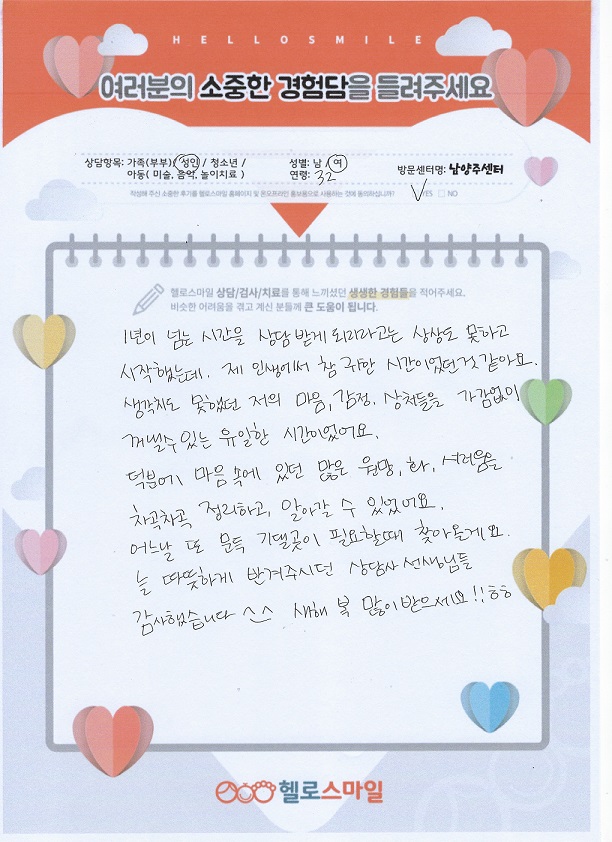 HELLOSMILE
여러분의 소중한 경험담을 들려주세요
상담항목: 가족(부부) / 성인 / 청소년 / 성별: 남 / 여
아동( 미술, 음악, 놀이치료 ) 연령: 32 방문센터명: 남양주센터
작성해 주신 소중한 후기를 헬로스마일 홈페이지 및 온오프라인 홍보용으로 사용하는 것에 동의하십니까? YES NO
헬로스마일 상담/검사/치료를 통해 느끼셨던 생생한 경험들을 적어주세요.
비슷한 어려움을 겪고 계신 분들께 큰 도움이 됩니다.
1년이 넘는 시간을 상담 받게 되리라고는 상상도 못하고
시작했는데. 제 인생에서 참 귀한 시간이었던것 같아요.
생각치도 못했던 저의 마음, 감정, 상처들을 가감없이
꺼낼수 있는 유일한 시간이었어요.
덕분에 마음 속에 있던 많은 원망, 화, 서러움을
차곡차곡 정리하고, 알아갈 수 있었어요.
어느날 또 문득 기댈곳이 필요할때 찾아올게요.
늘 따뜻하게 반겨주시던 상담사 선생님들
감사했습니다 ^^ 새해 복 많이 받으세요!! ㅎㅎ
헬로스마일